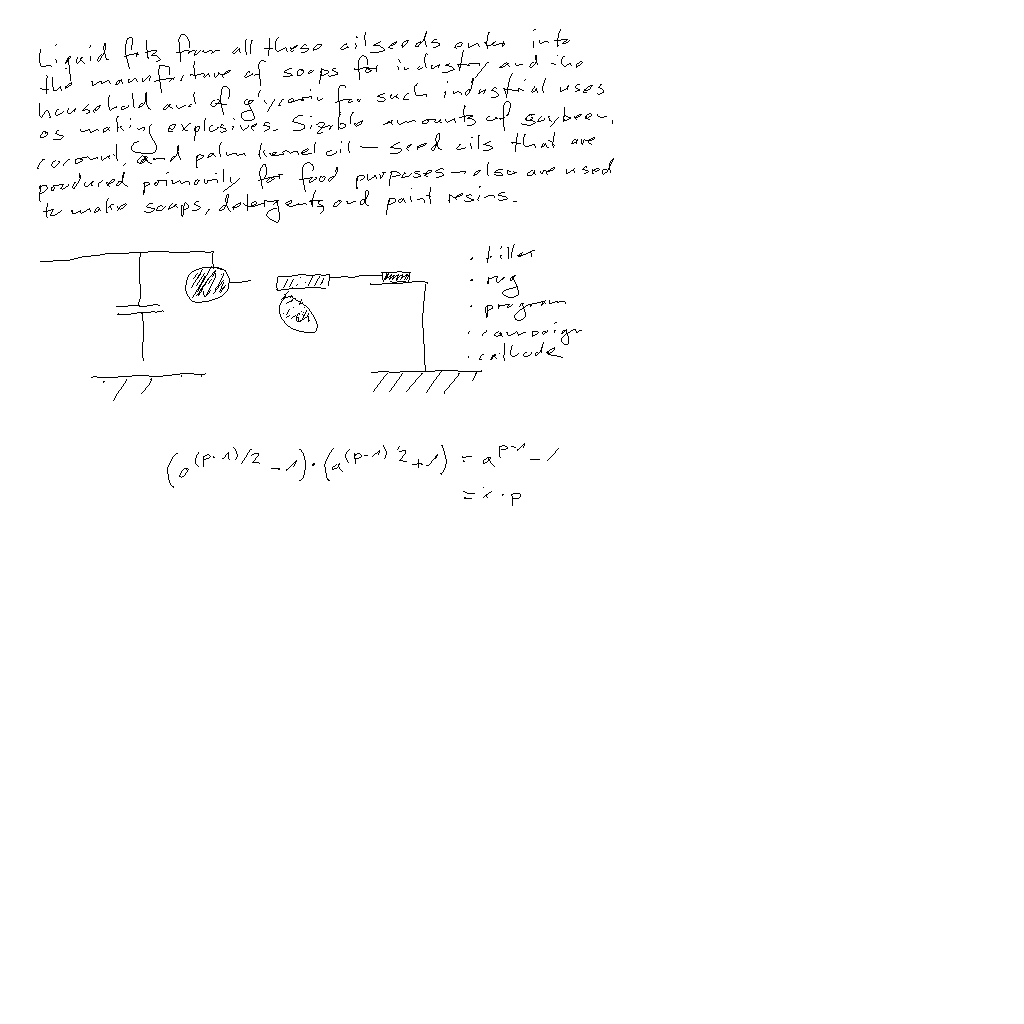 Liquid fats from all these oilseeds enter into
the manufacture of soaps for industry and the
household and of glycerin for such industrial uses
as making explosives. Sizable amounts of soybean,
coconut, and palm kernel oil — seed oils that are
produced primarily for food purposes — also are used
to make soaps, detergents, and paint resins.
· tiller
· rug
· program
· campaign
· cathode
(a^(p-1)/2 - 1) · (a^(p-1)/2 + 1) = a^p-1 - 1
= x · p